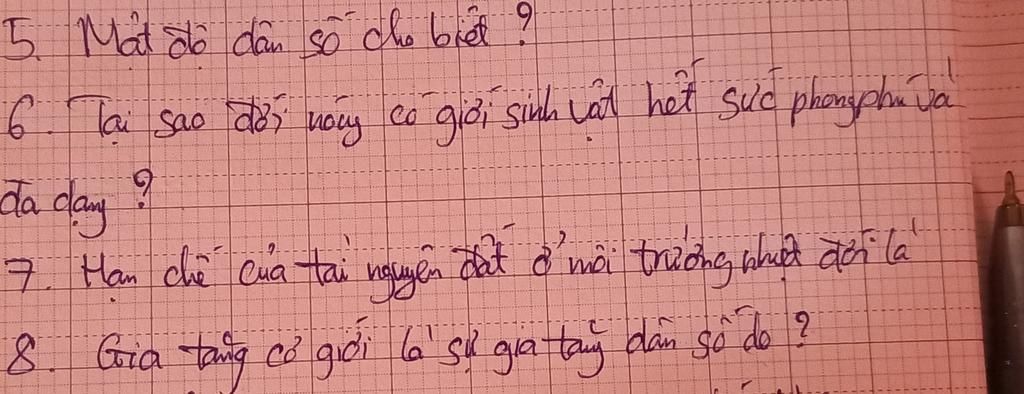 5. Mật độ dân số cho biết ?
6. Tại sao đới nóng có giới sinh vật hết sức phong phú và
đa dạng ?
7. Hạn chế của tài nguyên đất ở môi trường nhiệt đới là
8. Gia tăng cơ giới là sự gia tăng dân số do ?